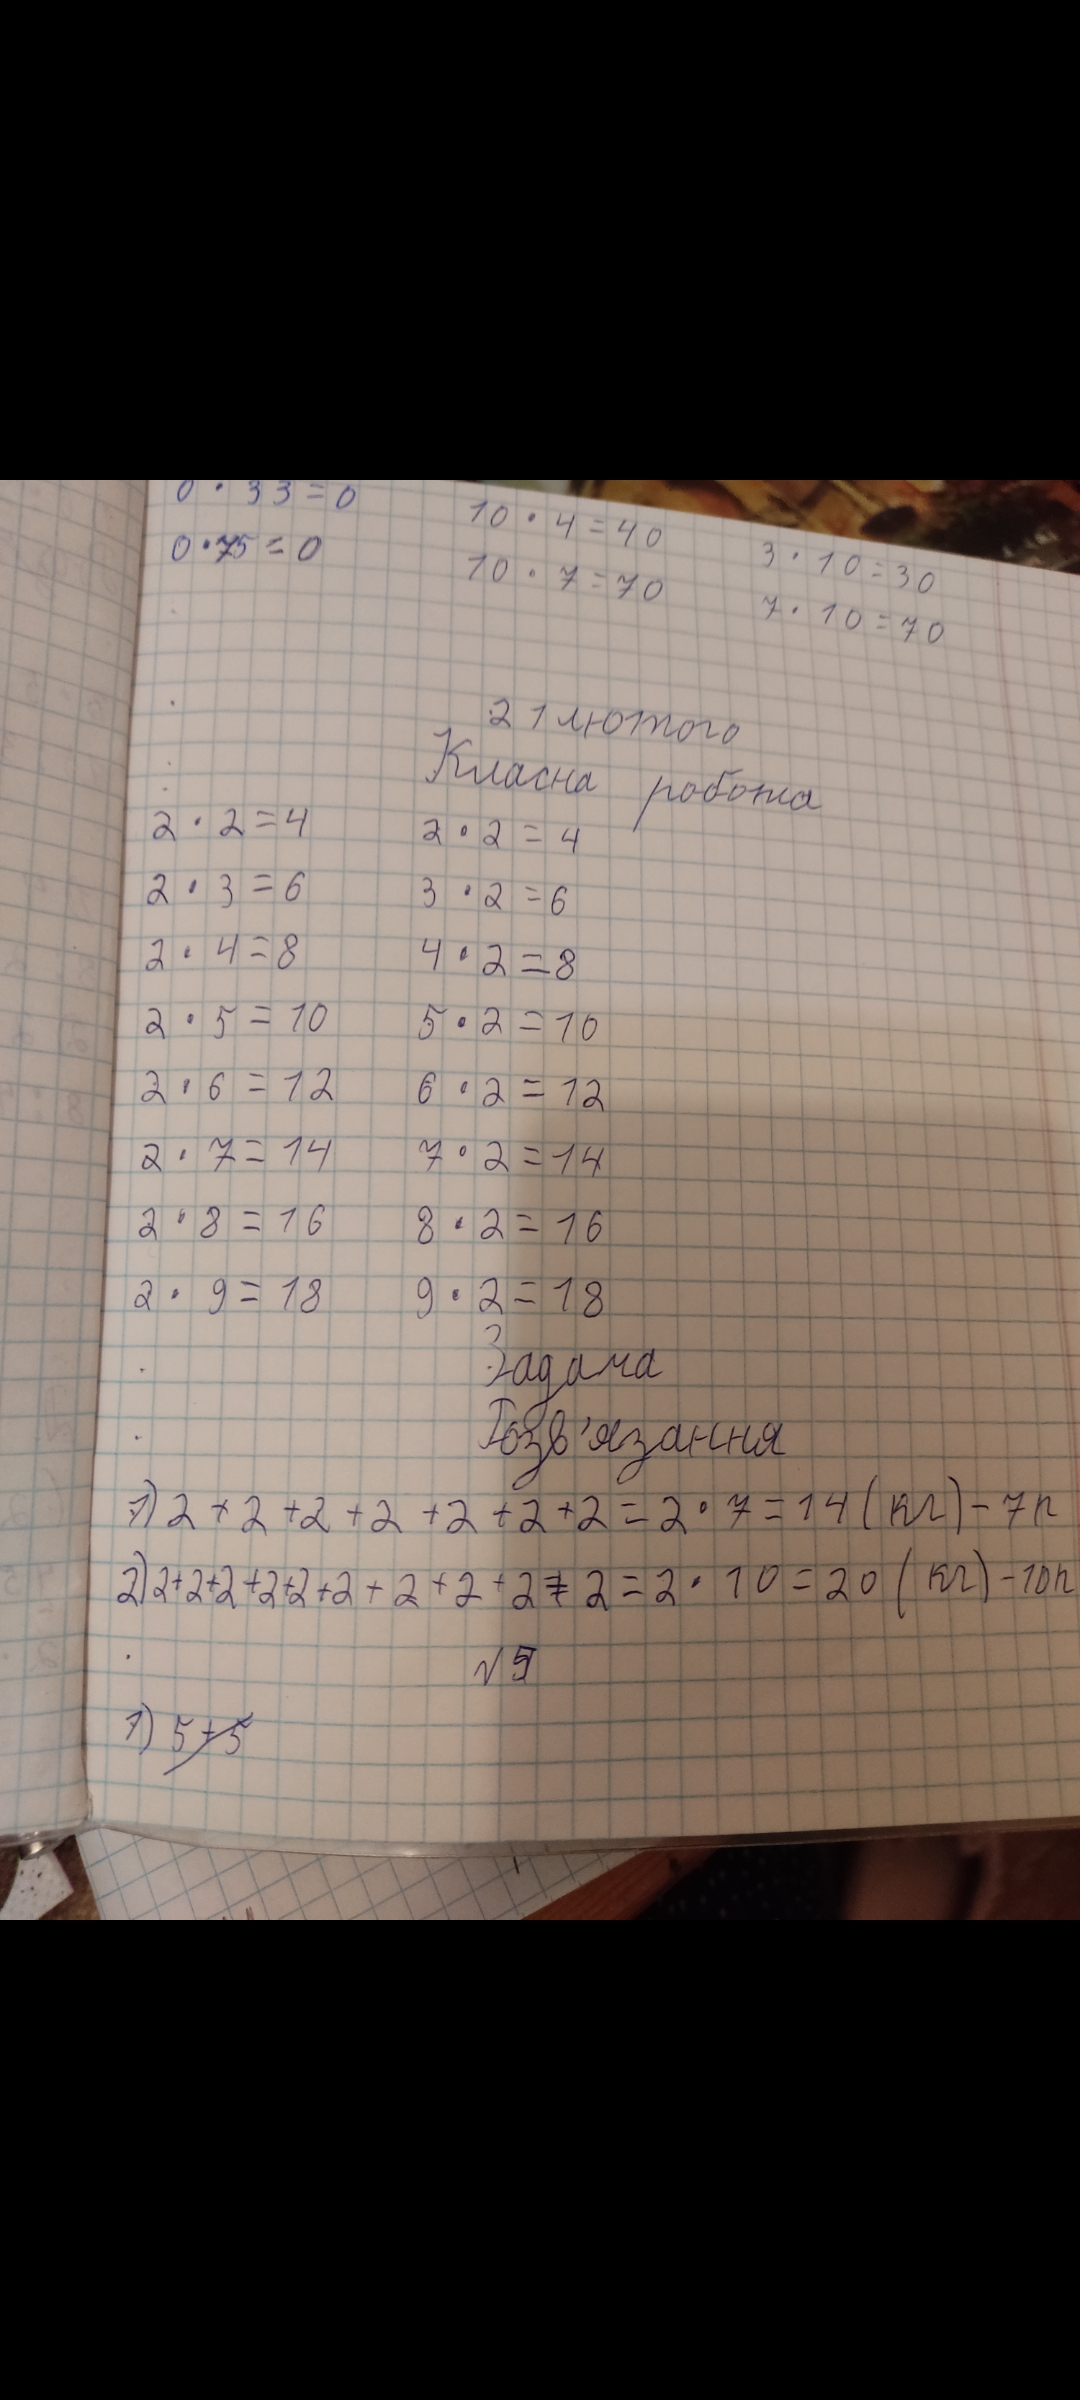 0 · 33 = 0
10 · 4 = 40
3 · 10 = 30
0 · 75 = 0
10 · 7 = 70
7 · 10 = 70
21 лютого
Класна робота
2 · 2 = 4 2 · 2 = 4
2 · 3 = 6 3 · 2 = 6
2 · 4 = 8 4 · 2 = 8
2 · 5 = 10 5 · 2 = 10
2 · 6 = 12 6 · 2 = 12
2 · 7 = 14 7 · 2 = 14
2 · 8 = 16 8 · 2 = 16
2 · 9 = 18 9 · 2 = 18
Задача
Розв'язання
1) 2 + 2 + 2 + 2 + 2 + 2 + 2 = 2 · 7 = 14 (кг) - 7п
2) 2+2+2+2+2+2+2+2+2+2 = 2 · 10 = 20 (кг) - 10п
№5
1) 5+5